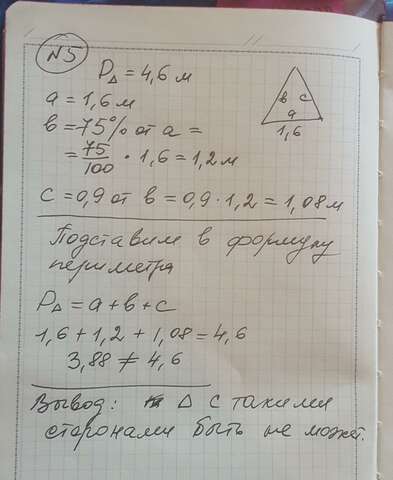 N5
P△ = 4,6 м
a = 1,6 м
в = 75% от a =
= 75/100 · 1,6 = 1,2 м
в c
a
1,6
c = 0,9 от в = 0,9 · 1,2 = 1,08 м
Подставим в формулу
периметра
P△ = a + в + c
1,6 + 1,2 + 1,08 = 4,6
3,88 ≠ 4,6
Вывод: △ с такими
сторонами быть не может.